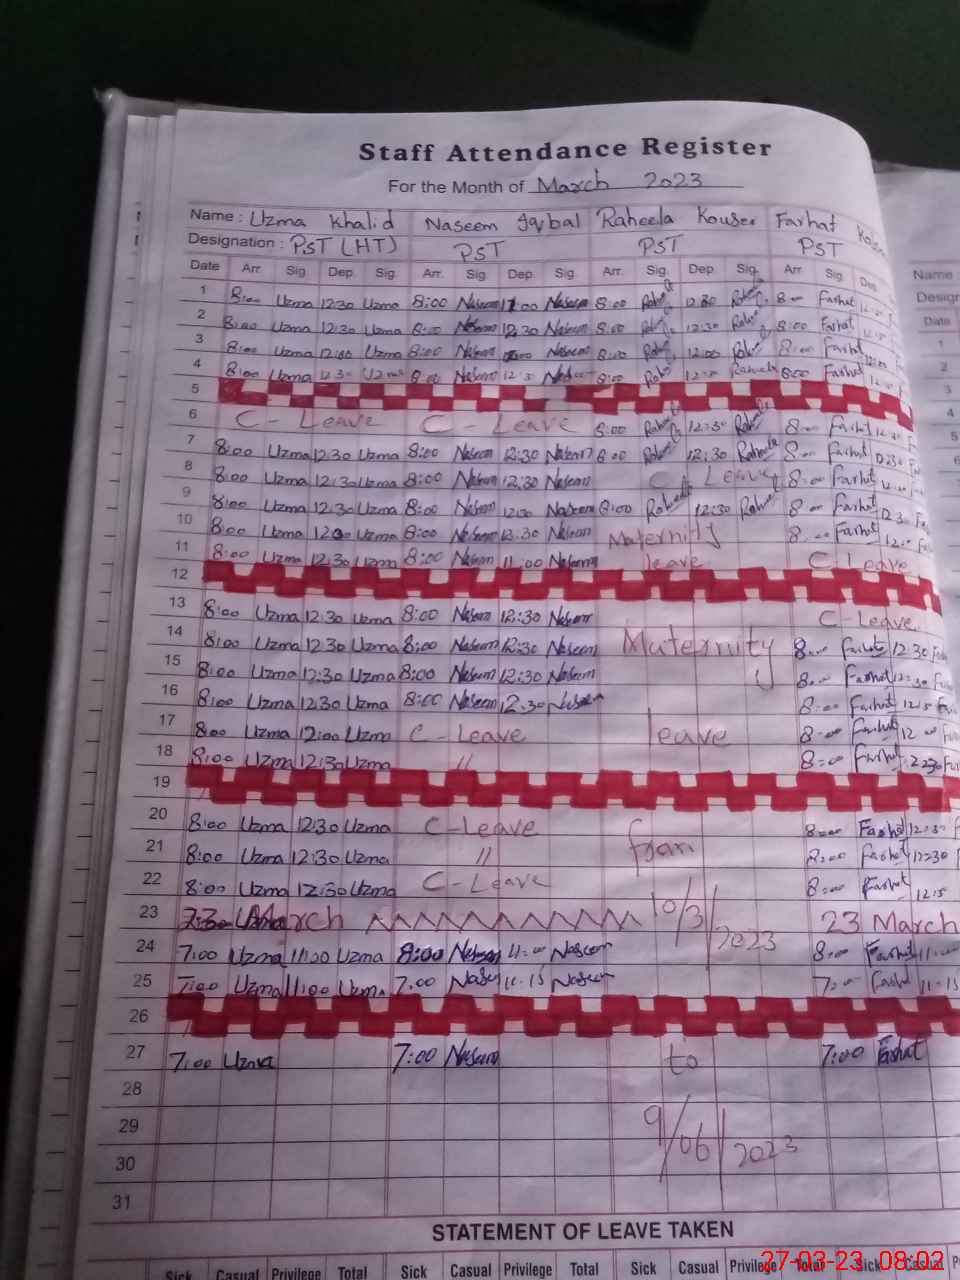 Staff Attendance Register
For the Month of March 2023
Name : Uzma Khalid Naseem Iqbal Raheela Kouser Farhat
Designation : PST (HT) PST PST PST
Date Arr. Sig. Dep. Sig. Arr. Sig. Dep. Sig. Arr. Sig. Dep. Sig. Arr. Sig. Dep.
1 8:00 Uzma 12:30 Uzma 8:00 Naseem Naseem 8:00 12:30 8:00 Farhat
2 8:00 Uzma 12:30 Uzma 8:00 Naseem 12:30 Naseem 8:00 12:30 8:00 Farhat
3 8:00 Uzma Uzma 8:00 Naseem Naseem 8:00 12:00 8:00 Farhat
4 8:00 Uzma 12:30 Uzma 8:00 Naseem Naseem 8:00 Raheela 8:00 Farhat
5
6 C - Leave C - Leave 8:00 12:30 8:00 Farhat 12:30
7 8:00 Uzma 12:30 Uzma 8:00 Naseem 12:30 Naseem 8:00 12:30 Raheela 8:00 Farhat 12:30
8 8:00 Uzma 12:30 Uzma 8:00 Naseem 12:30 Naseem C Leave 8:00 Farhat
9 8:00 Uzma 12:30 Uzma 8:00 Naseem 12:30 Naseem 8:00 12:30 8:00 Farhat 12:30
10 8:00 Uzma Uzma 8:00 Naseem 12:30 Naseem Maternity 8:00 Farhat
11 8:00 Uzma 12:30 Uzma 8:00 Naseem 11:00 Naseem leave C - Leave
12
13 8:00 Uzma 12:30 Uzma 8:00 Naseem 12:30 Naseem C - Leave
14 8:00 Uzma 12:30 Uzma 8:00 Naseem 12:30 Naseem Maternity 8:00 Farhat 12:30
15 8:00 Uzma 12:30 Uzma 8:00 Naseem 12:30 Naseem 8:00 Farhat 12:30
16 8:00 Uzma 12:30 Uzma 8:00 Naseem 12:30 Naseem 8:00 Farhat
17 8:00 Uzma 12:00 Uzma C - Leave leave 8:00 Farhat 12:00
18 8:00 Uzma 12:30 Uzma // 8:00 Farhat
19
20 8:00 Uzma 12:30 Uzma C - Leave from 8:00 Farhat 12:30
21 8:00 Uzma 12:30 Uzma // 8:00 Farhat 12:30
22 8:00 Uzma 12:30 Uzma C - Leave 8:00 Farhat
23 March 10/3/2023 23 March
24 7:00 Uzma 11:00 Uzma 8:00 Naseem 11:00 Naseem 8:00 Farhat 11:00
25 7:00 Uzma 11:00 Uzma 7:00 Naseem 11:15 Naseem 7:00 Farhat 11:15
26
27 7:00 Uzma 7:00 Naseem to 7:00 Farhat
28
29 9/06/2023
30
31
STATEMENT OF LEAVE TAKEN
Sick Casual Privilege Total Sick Casual Privilege Total Sick Casual Privilege Total Sick Casual
27-03-23 08:02
Name :
Date
1
2
3
4
5